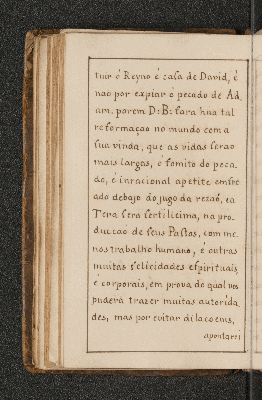 tuir o Reyno é casa de David, é
nao por expiar ó pecado de Ad,
am, porem D: B: fara hua tal
reformaçao no mundo com a
sua vinda, que as vidas serao
mais largas, é fomito do peca
do, é inracional apetite emfre
ado debajo do jugo da rezaõ, ea
Tera sera fertilicima, na pro_
duccao de seus Pastos, com me
nos trabalho humano, é outras
muitas felicidades espirituais
é corporais, em prova do qual vos
pudera trazer muitas autorida
des, mas por evitar dilacoems,
apontarei